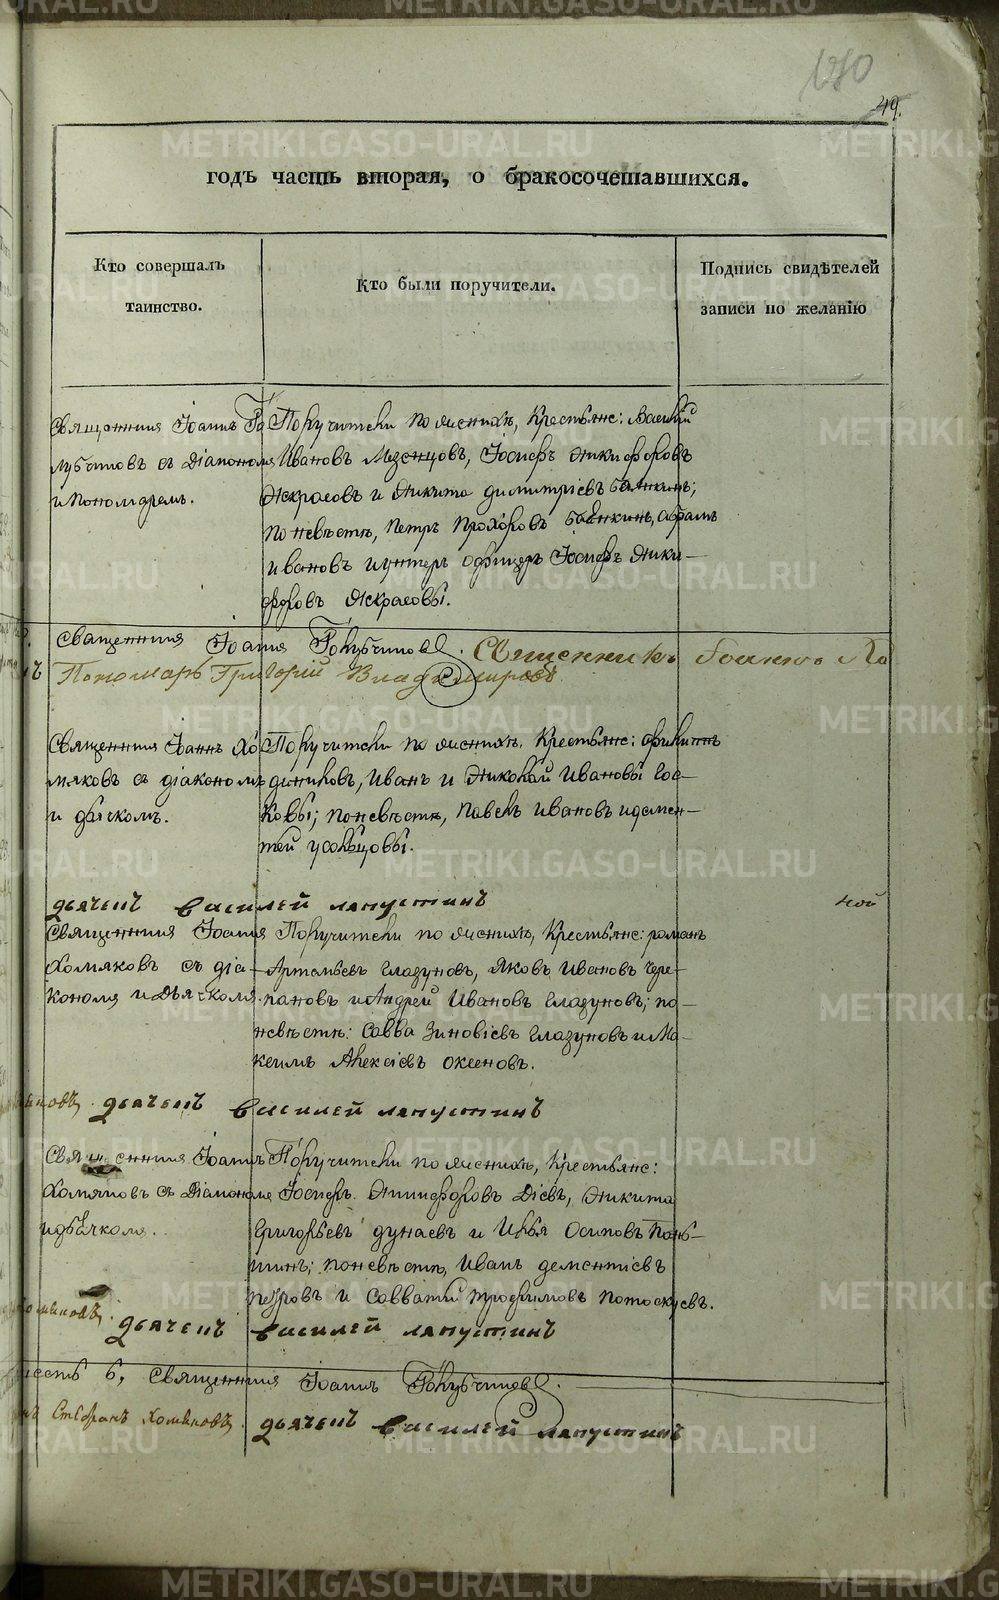 180
49.
годъ часть вторая, о бракосочетавшихся.
Кто совершалъ
таинство.
Кто были поручители.
Подпись свидѣтелей
записи по желанію
Священникъ Іоаннъ Го
лубчиковъ съ Діакономъ
и Пономаремъ.
Поручители по женихѣ, Крестьяне: Василий
Ивановъ Мезенцовъ, Іосифъ Никифоровъ
Некрасовъ и Никита Димитріевъ
по невѣстѣ, Петръ Прохоровъ
Ивановъ и унтеръ офицеръ Іосифъ Ники-
форовъ Некрасовы.
Священникъ Іоаннъ Голубчиковъ. Священникъ Іоаннъ
Пономаръ Григорій Владимировъ
Священникъ Іоаннъ Хо
мяковъ съ діакономъ
и дьячкомъ.
Поручители по женихѣ, Крестьяне:
Иванъ и Николай Ивановы
по невѣстѣ, Павелъ Ивановъ и Демен-
тей Усольцовы.
дьячекъ василей лапустинъ
Священникъ Іоаннъ
Хомяковъ съ діа-
кономъ и Дьячкомъ.
Поручители по женихѣ, Крестьяне: романъ
Артемьевъ Глазуновъ, Яковъ Ивановъ Чере-
пановъ и Андрей Ивановъ Глазуновъ; по-
невѣстѣ: Савва Зиновіевъ Глазуновъ и Ма-
ксимъ Алексіевъ Оксеновъ.
дьячекъ василей лапустинъ
Священникъ Іоаннъ
Хомяковъ съ Діакономъ
и дьячкомъ.
Поручители по женихѣ, Крестьяне:
Іосифъ Никифоровъ Діевъ, Никита
Григорьевъ Дунаевъ и Илья Осиповъ Понь-
кинъ; по невѣстѣ, Иванъ Дементіевъ
Петровъ и Савватій Трофимовъ Потоскуевъ.
дьячекъ василей лапустинъ
шесть 6, Священникъ Іоаннъ Голубчиковъ.
Стефанъ Хомяковъ. дьячекъ василей лапустинъ
METRIKI.GASO-URAL.RU